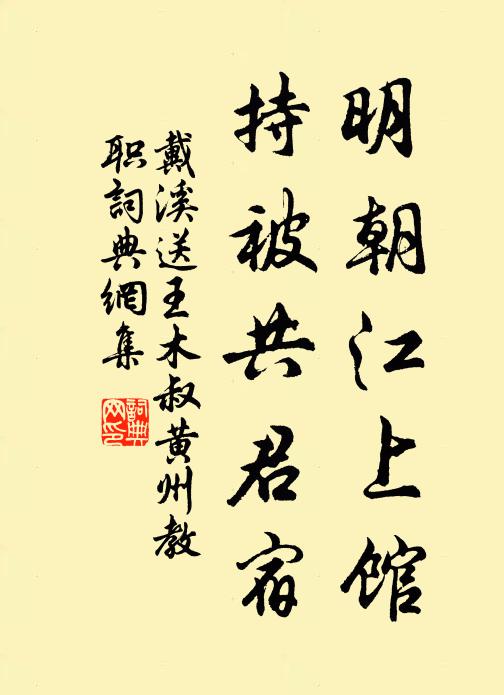 明朝江上館
持被共君宿
戴溪送王木叔黄州教
职詞典網集
詞典
网印